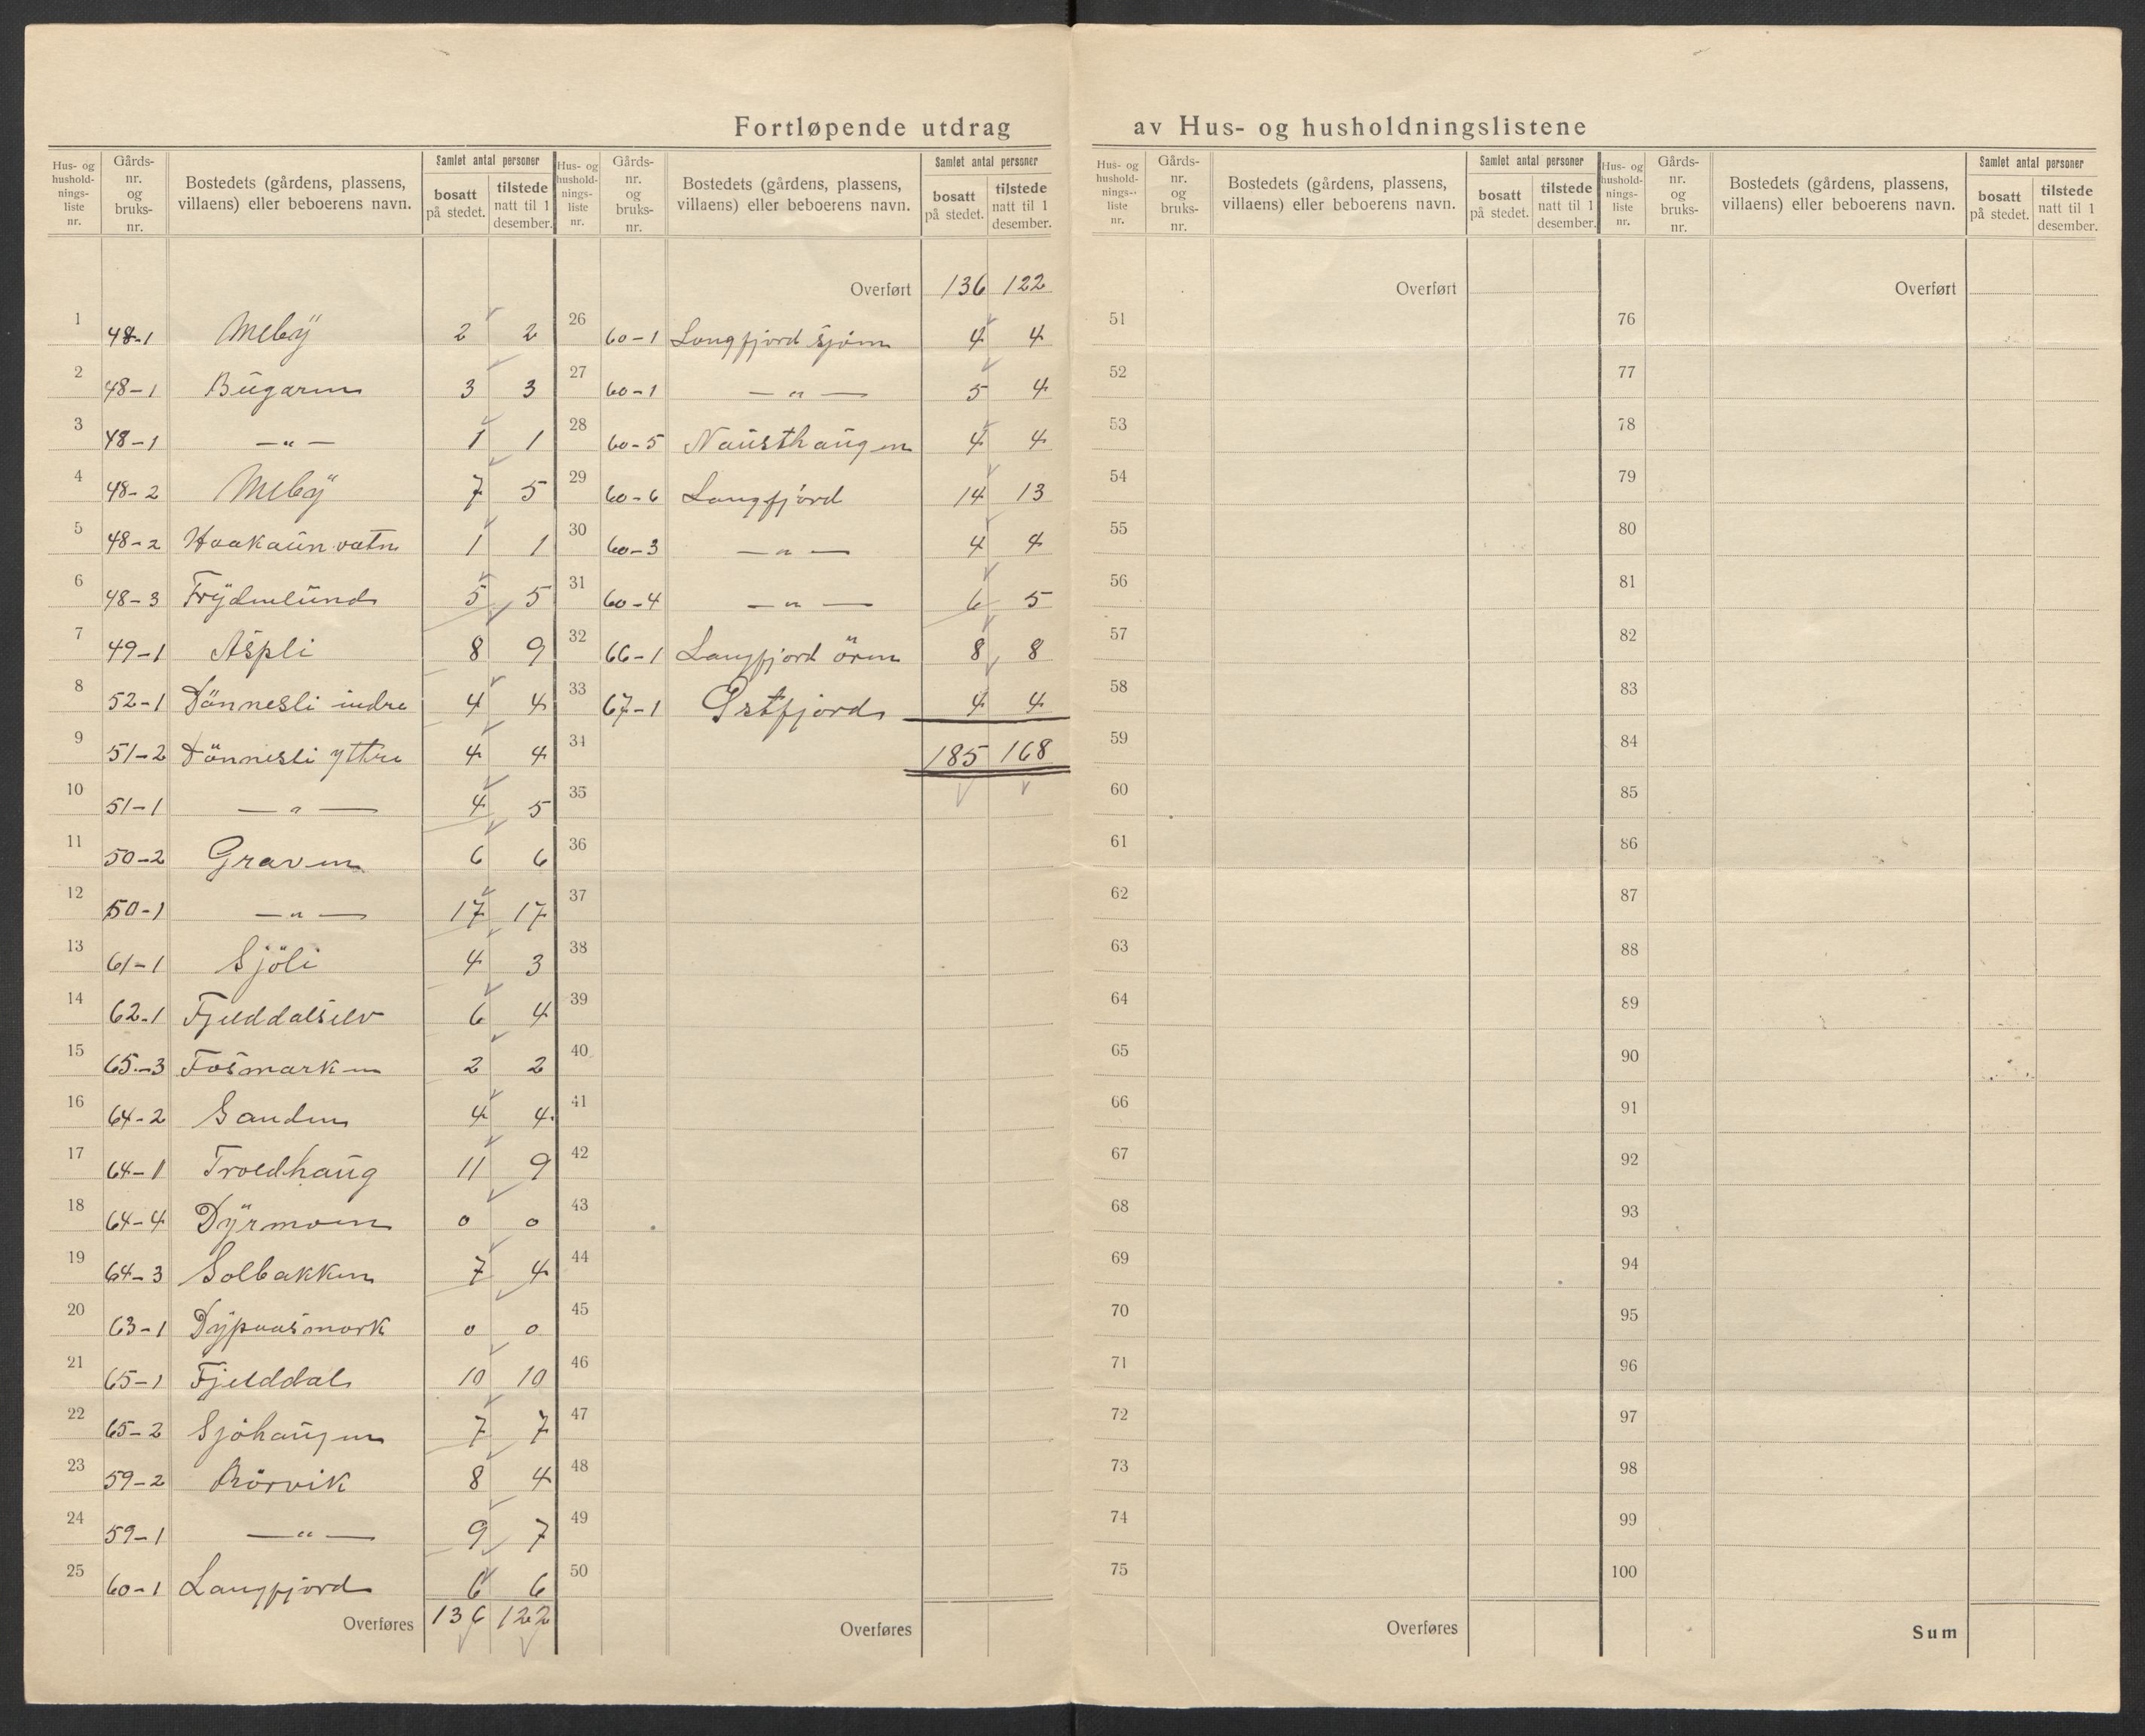 Fortløpende utdrag av Hus- og husholdningslistene
Hus- og hushold- nings- liste nr. | Gårds- nr. og bruks- nr. | Bostedets (gårdens, plassens, villaens) eller beboerens navn. | Samlet antal personer | bosatt på stedet. | tilstede natt til 1 desember.
1 48-1 Meby 2 2
2 48-1 Bugaren 3 3
3 48-1 —"— 1 1
4 48-2 Meby 7 5
5 48-2 Haakaunvatn 1 1
6 48-3 Frydenlund 5 5
7 49-1 Aspli 8 9
8 52-1 Tönnesli indre 4 4
9 51-2 Tönnesli yttre 4 4
10 51-1 —"— 4 5
11 50-2 Graven 6 6
12 50-1 —"— 17 17
13 61-1 Sjöli 4 3
14 62-1 Fjelddalselv 6 4
15 65-3 Fosmarken 2 2
16 64-2 Sanden 4 4
17 64-1 Troldhaug 11 9
18 64-4 Dyrmoen 0 0
19 64-3 Solbakken 7 4
20 63-1 Dypaasmark 0 0
21 65-1 Fjelddal 10 10
22 65-2 Sjöhaugen 7 7
23 59-2 Rörvik 8 4
24 59-1 —"— 9 7
25 60-1 Langfjord 6 6
Overføres 136 122
Hus- og hushold- nings- liste nr. | Gårds- nr. og bruks- nr. | Bostedets (gårdens, plassens, villaens) eller beboerens navn. | Samlet antal personer | bosatt på stedet. | tilstede natt til 1 desember.
Overført 136 122
26 60-1 Langfjord sjöen 4 4
27 60-1 —"— 5 4
28 60-5 Nausthaugen 4 4
29 60-6 Langfjord 14 13
30 60-3 —"— 4 4
31 60-4 —"— 6 5
32 66-1 Langfjord ören 8 8
33 67-1 Östfjord 4 4
34 185 168
35
36
37
38
39
40
41
42
43
44
45
46
47
48
49
50
Overføres
Hus- og hushold- nings- liste nr. | Gårds- nr. og bruks- nr. | Bostedets (gårdens, plassens, villaens) eller beboerens navn. | Samlet antal personer | bosatt på stedet. | tilstede natt til 1 desember.
Overført
51
52
53
54
55
56
57
58
59
60
61
62
63
64
65
66
67
68
69
70
71
72
73
74
75
Overføres
Hus- og hushold- nings- liste nr. | Gårds- nr. og bruks- nr. | Bostedets (gårdens, plassens, villaens) eller beboerens navn. | Samlet antal personer | bosatt på stedet. | tilstede natt til 1 desember.
Overført
76
77
78
79
80
81
82
83
84
85
86
87
88
89
90
91
92
93
94
95
96
97
98
99
100
Sum